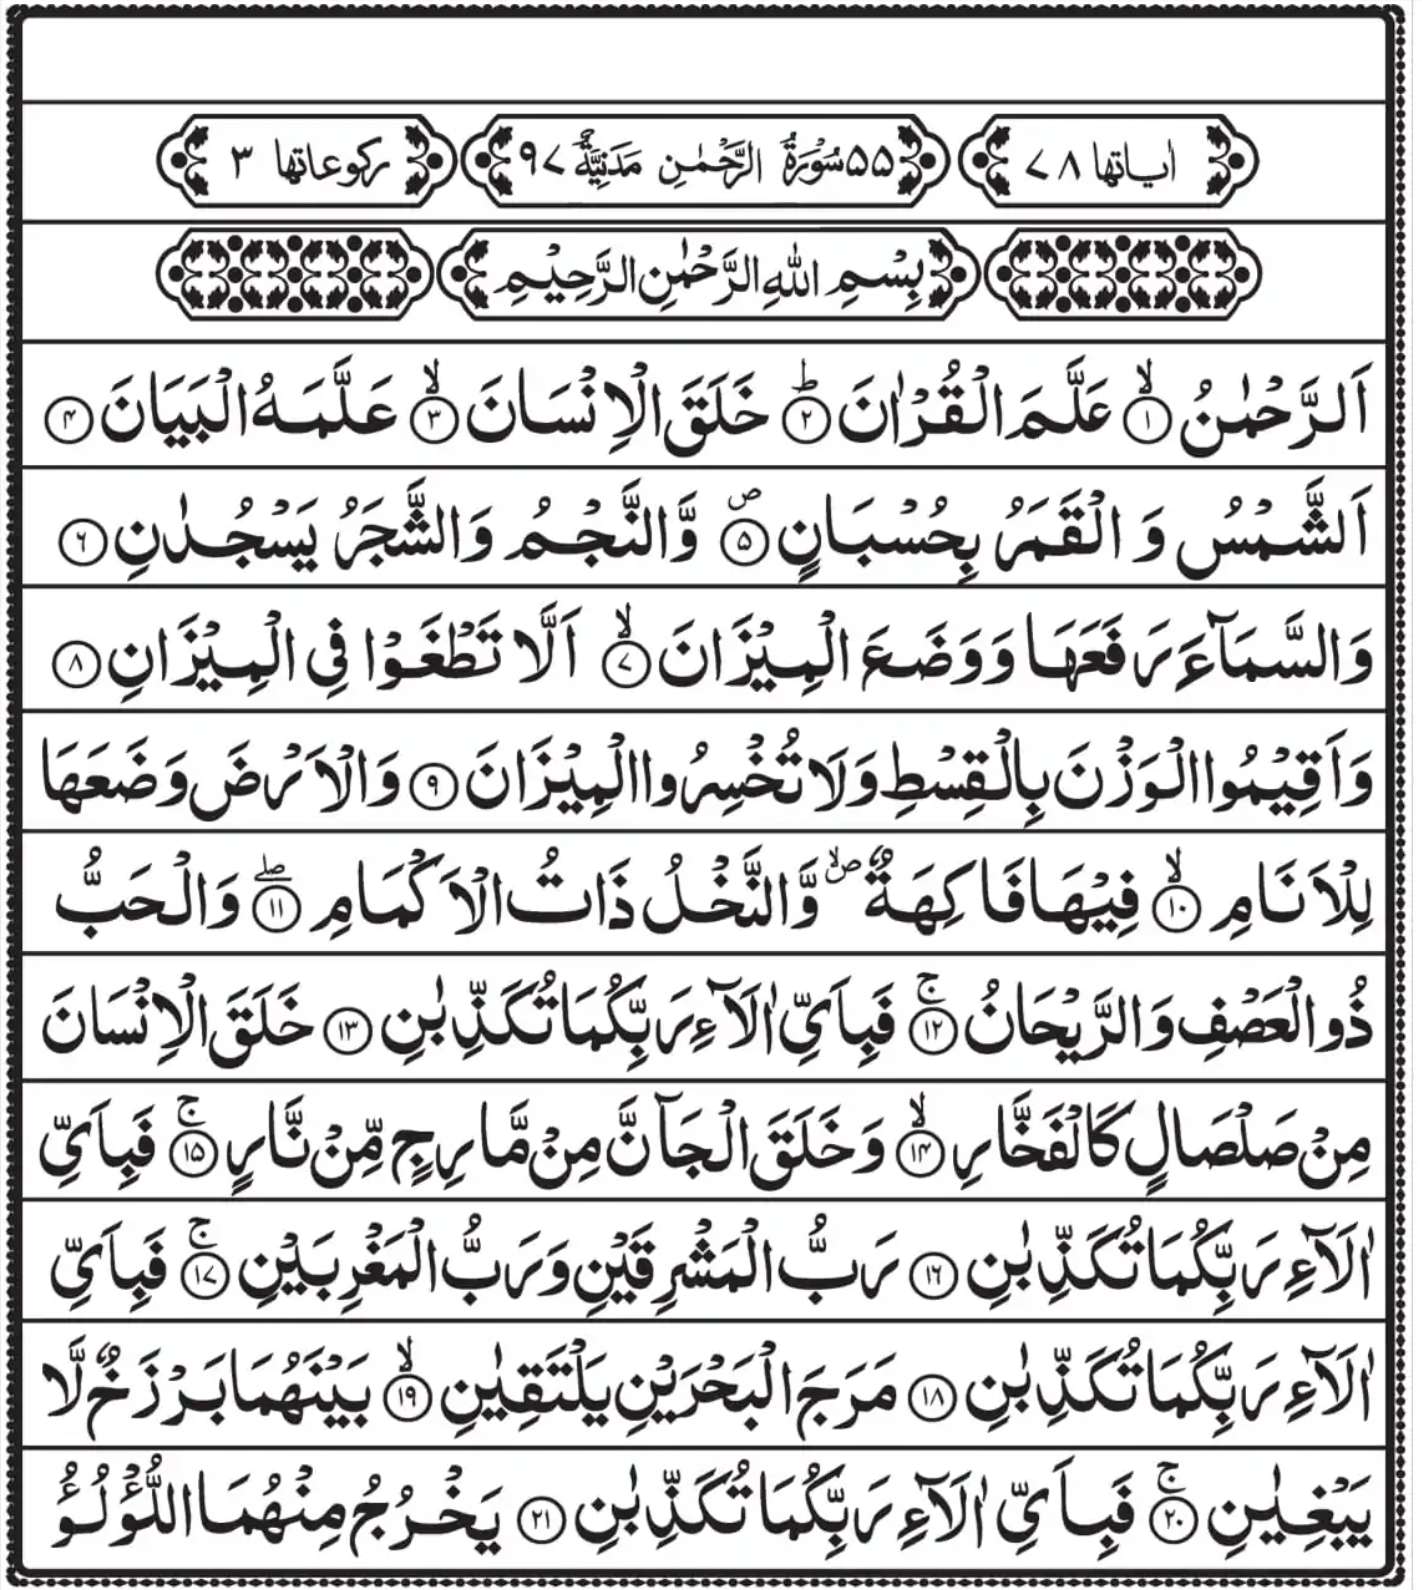 اٰياتها ٧٨
٥٥ سُوْرَةُ الرَّحْمٰنِ مَدَنِيَّةٌ ٩٧
ركوعاتها ٣
بِسْمِ اللّٰهِ الرَّحْمٰنِ الرَّحِيْمِ
اَلرَّحْمٰنُ ۙ﴿۱﴾ عَلَّمَ الْقُرْاٰنَ ؕ﴿۲﴾ خَلَقَ الْاِنْسَانَ ۙ﴿۳﴾ عَلَّمَهُ الْبَيَانَ ﴿۴﴾
اَلشَّمْسُ وَ الْقَمَرُ بِحُسْبَانٍ ۪﴿۵﴾ وَّالنَّجْمُ وَالشَّجَرُ يَسْجُدٰنِ ﴿۶﴾
وَالسَّمَآءَ رَفَعَهَا وَوَضَعَ الْمِيْزَانَ ۙ﴿۷﴾ اَلَّا تَطْغَوْا فِى الْمِيْزَانِ ﴿۸﴾
وَاَقِيْمُوا الْوَزْنَ بِالْقِسْطِ وَلَا تُخْسِرُوا الْمِيْزَانَ ﴿۹﴾ وَالْاَرْضَ وَضَعَهَا
لِلْاَنَامِ ۙ﴿۱۰﴾ فِيْهَا فَاكِهَةٌ ۪ۙ وَّالنَّخْلُ ذَاتُ الْاَكْمَامِ ۖ﴿۱۱﴾ وَالْحَبُّ
ذُو الْعَصْفِ وَالرَّيْحَانُ ۚ﴿۱۲﴾ فَبِاَىِّ اٰلَآءِ رَبِّكُمَا تُكَذِّبٰنِ ﴿۱۳﴾ خَلَقَ الْاِنْسَانَ
مِنْ صَلْصَالٍ كَالْفَخَّارِ ۙ﴿۱۴﴾ وَخَلَقَ الْجَآنَّ مِنْ مَّارِجٍ مِّنْ نَّارٍ ۚ﴿۱۵﴾ فَبِاَىِّ
اٰلَآءِ رَبِّكُمَا تُكَذِّبٰنِ ﴿۱۶﴾ رَبُّ الْمَشْرِقَيْنِ وَرَبُّ الْمَغْرِبَيْنِ ۚ﴿۱۷﴾ فَبِاَىِّ
اٰلَآءِ رَبِّكُمَا تُكَذِّبٰنِ ﴿۱۸﴾ مَرَجَ الْبَحْرَيْنِ يَلْتَقِيٰنِ ۙ﴿۱۹﴾ بَيْنَهُمَا بَرْزَخٌ لَّا
يَبْغِيٰنِ ۚ﴿۲۰﴾ فَبِاَىِّ اٰلَآءِ رَبِّكُمَا تُكَذِّبٰنِ ﴿۲۱﴾ يَخْرُجُ مِنْهُمَا اللُّؤْلُؤُ